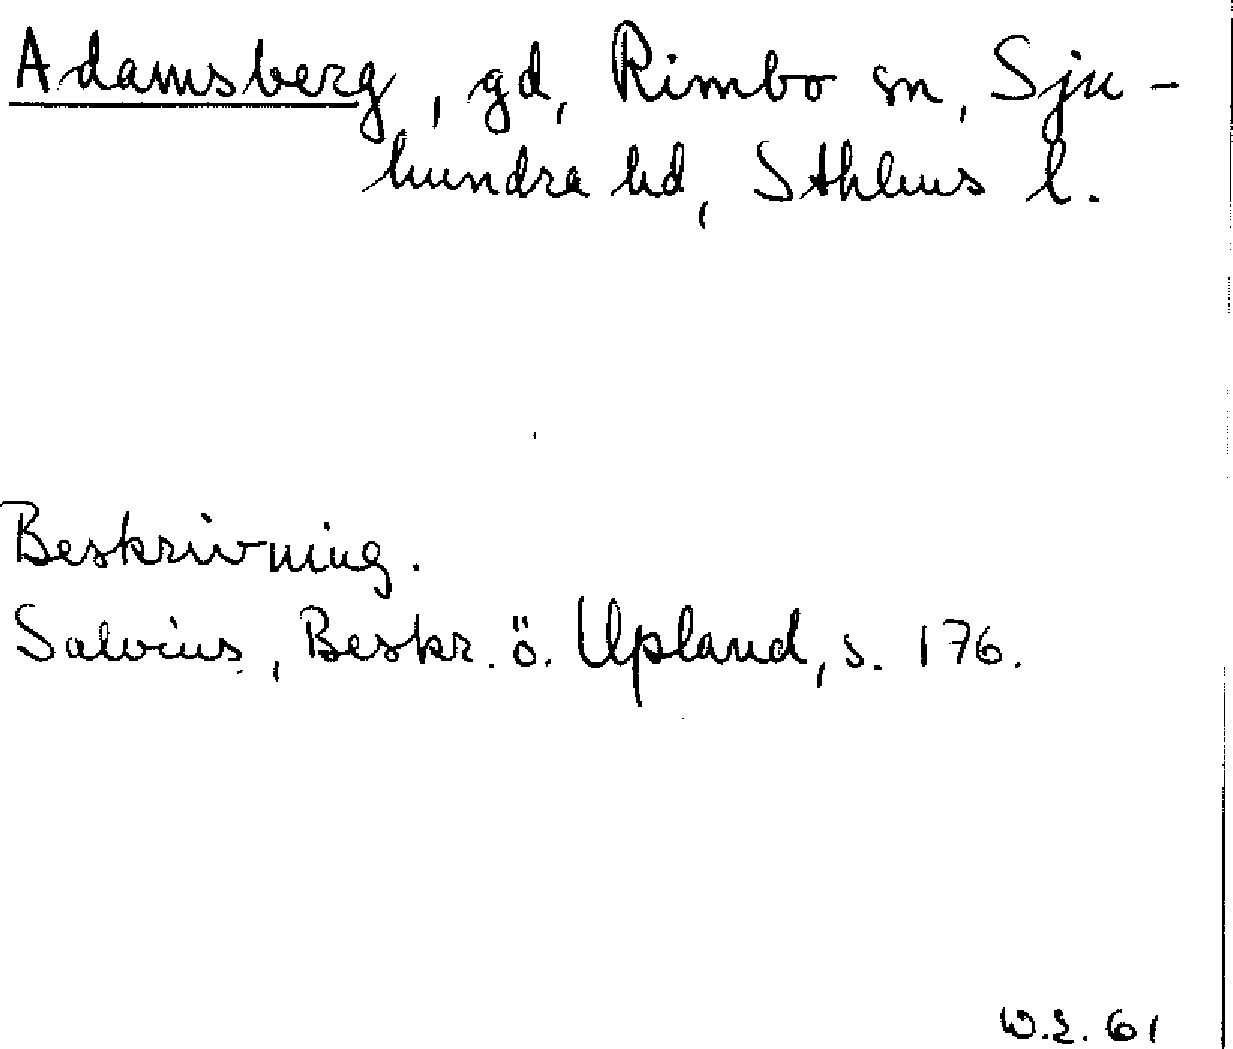 Adamsberg, gd, Rimbo sn, Sju-
hundra hd, Sthlms l.
Beskrivning.
Salvius, Beskr. ö. Upland, s. 176.
W.L. 61